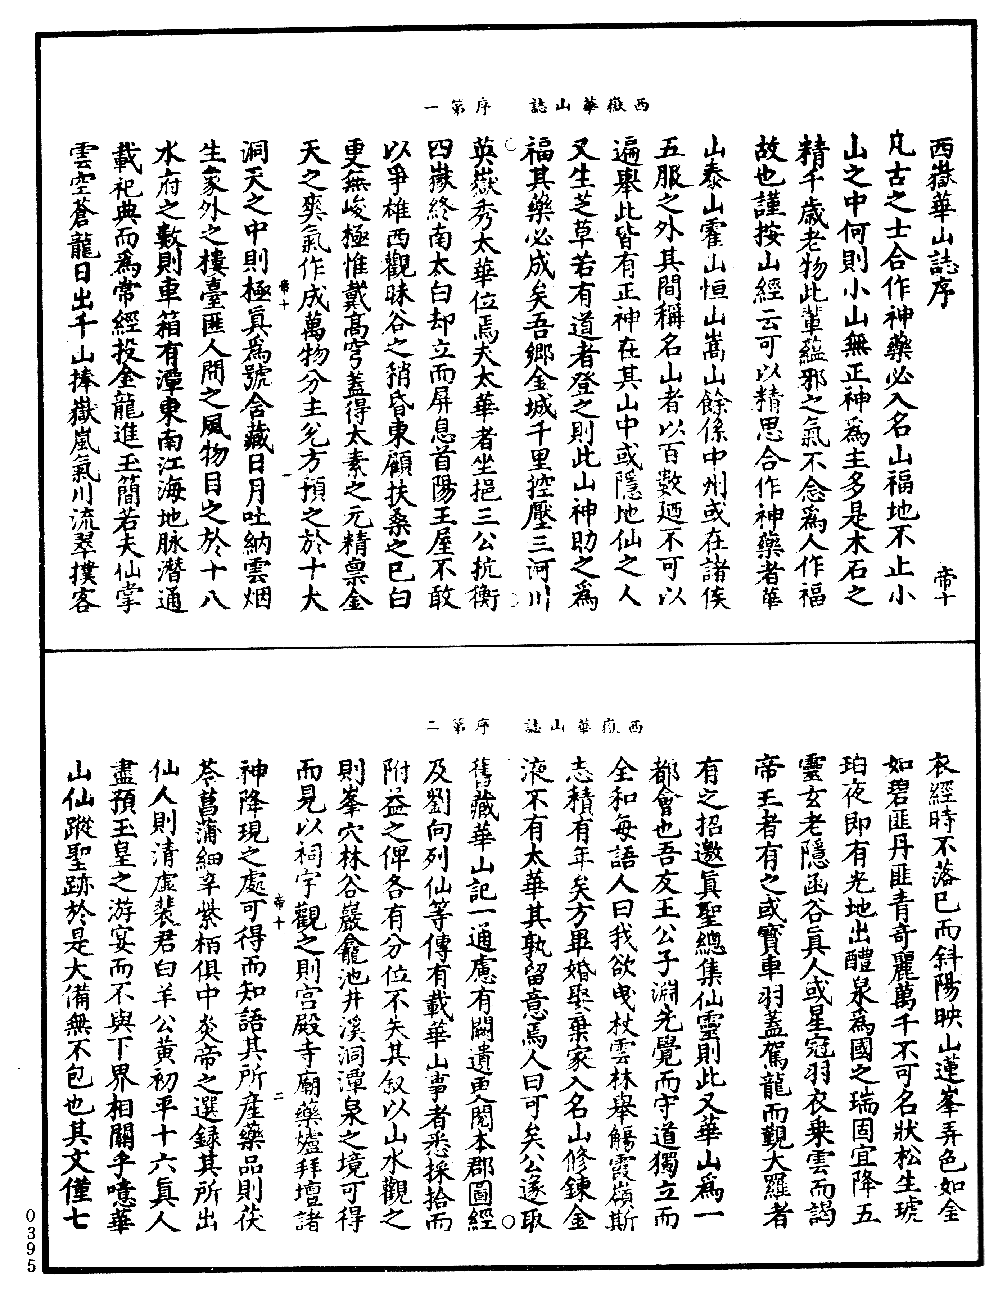 西嶽華山誌　序第一
西嶽華山誌序　帝十
凡古之士合作神藥必入名山福地不止小
山之中何則小山無正神爲主多是木石之
精千歲老物此輩蘊邪之氣不念爲人作福
故也謹按山經云可以精思合作神藥者華
山泰山霍山恒山嵩山餘係中州或在諸侯
五服之外其間稱名山者以百數廼不可以
遍舉此皆有正神在其山中或隱地仙之人
又生芝草若有道者登之則此山神助之爲
福其藥必成矣吾鄉金城千里控壓三河川
英嶽秀太華位焉夫太華者坐挹三公抗衡
四嶽終南太白却立而屏息首陽王屋不敢
以爭雄西觀昧谷之稍昏東顧扶桑之已白
更無峻極惟戴高穹蓋得太素之元精稟金
天之爽氣作成萬物分主兌方預之於十大
帝十　一
洞天之中則極真爲號含藏日月吐納雲烟
生象外之樓臺匪人間之風物目之於十八
水府之數則車箱有潭東南江海地脉潛通
載祀典而爲常經投金龍進玉簡若夫仙掌
雲空蒼龍日出千山捧嶽嵐氣川流翠撲客
西嶽華山誌　序第二
衣經時不落已而斜陽映山蓮峯弄色如金
如碧匪丹匪青奇麗萬千不可名狀松生琥
珀夜即有光地出醴泉爲國之瑞固宜降五
靈玄老隱函谷真人或星冠羽衣乘雲而謁
帝王者有之或寶車羽蓋駕龍而覲大羅者
有之招邀真聖總集仙靈則此又華山爲一
都會也吾友王公子淵先覺而守道獨立而
全和每語人曰我欲曳杖雲林舉觴霞嶺斯
志積有年矣方畢婚娶棄家入名山修鍊金
液不有太華其孰留意焉人曰可矣公遂取
舊藏華山記一通慮有闕遺更閱本郡圖經
及劉向列仙等傳有載華山事者悉採拾而
附益之俾各有分位不失其叙以山水觀之
則峯穴林谷巖龕池井溪洞潭泉之境可得
而見以祠宇觀之則宮殿寺廟藥爐拜壇諸
帝十　二
神降現之處可得而知語其所產藥品則茯
苓菖蒲細辛紫栢俱中炎帝之選録其所出
仙人則清虛裴君白羊公黃初平十六真人
盡預玉皇之游宴而不與下界相關乎噫華
山仙蹤聖跡於是大備無不包也其文僅七
0395